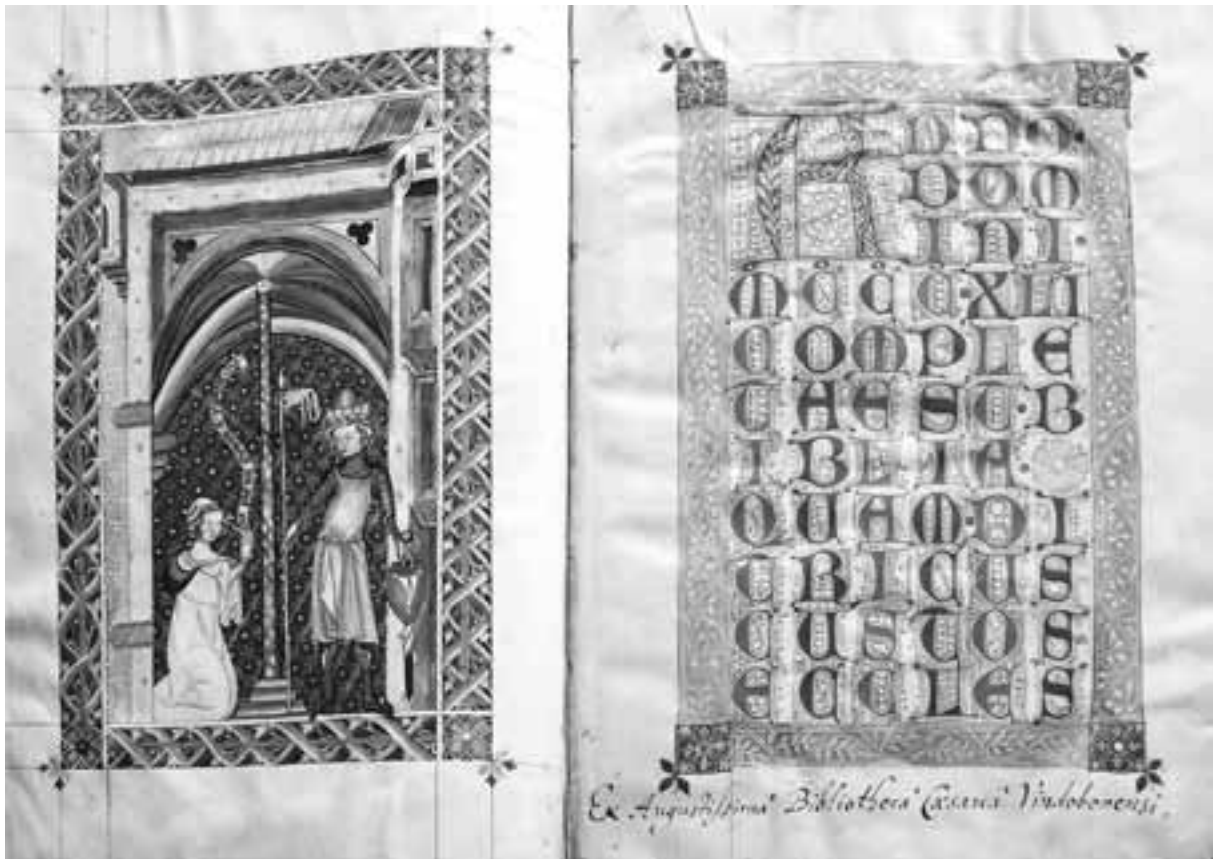 ANNO·
DOM
INI·
MCCC·XLII
COMPLE
TAEST·B
IBLIA·
QUAM·DI
TRICUS
CUSTOS·
ECCLES
Ex Augustissimâ Bibliothecâ Cæsareâ Vindobonensi.